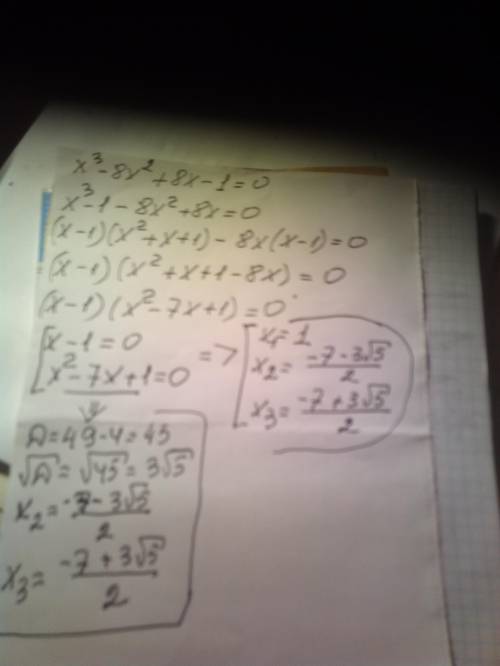 x³-8x²+8x-1=0
x³-1-8x²+8x=0
(x-1)(x²+x+1)-8x(x-1)=0
(x-1)(x²+x+1-8x)=0
(x-1)(x²-7x+1)=0
[x-1=0
x²-7x+1=0
=> [x₁=1
x₂=(-7-3√5)/2
x₃=(-7+3√5)/2
D=49-4=45
√D=√45=3√5
x₂=(-7-3√5)/2
x₃=(-7+3√5)/2